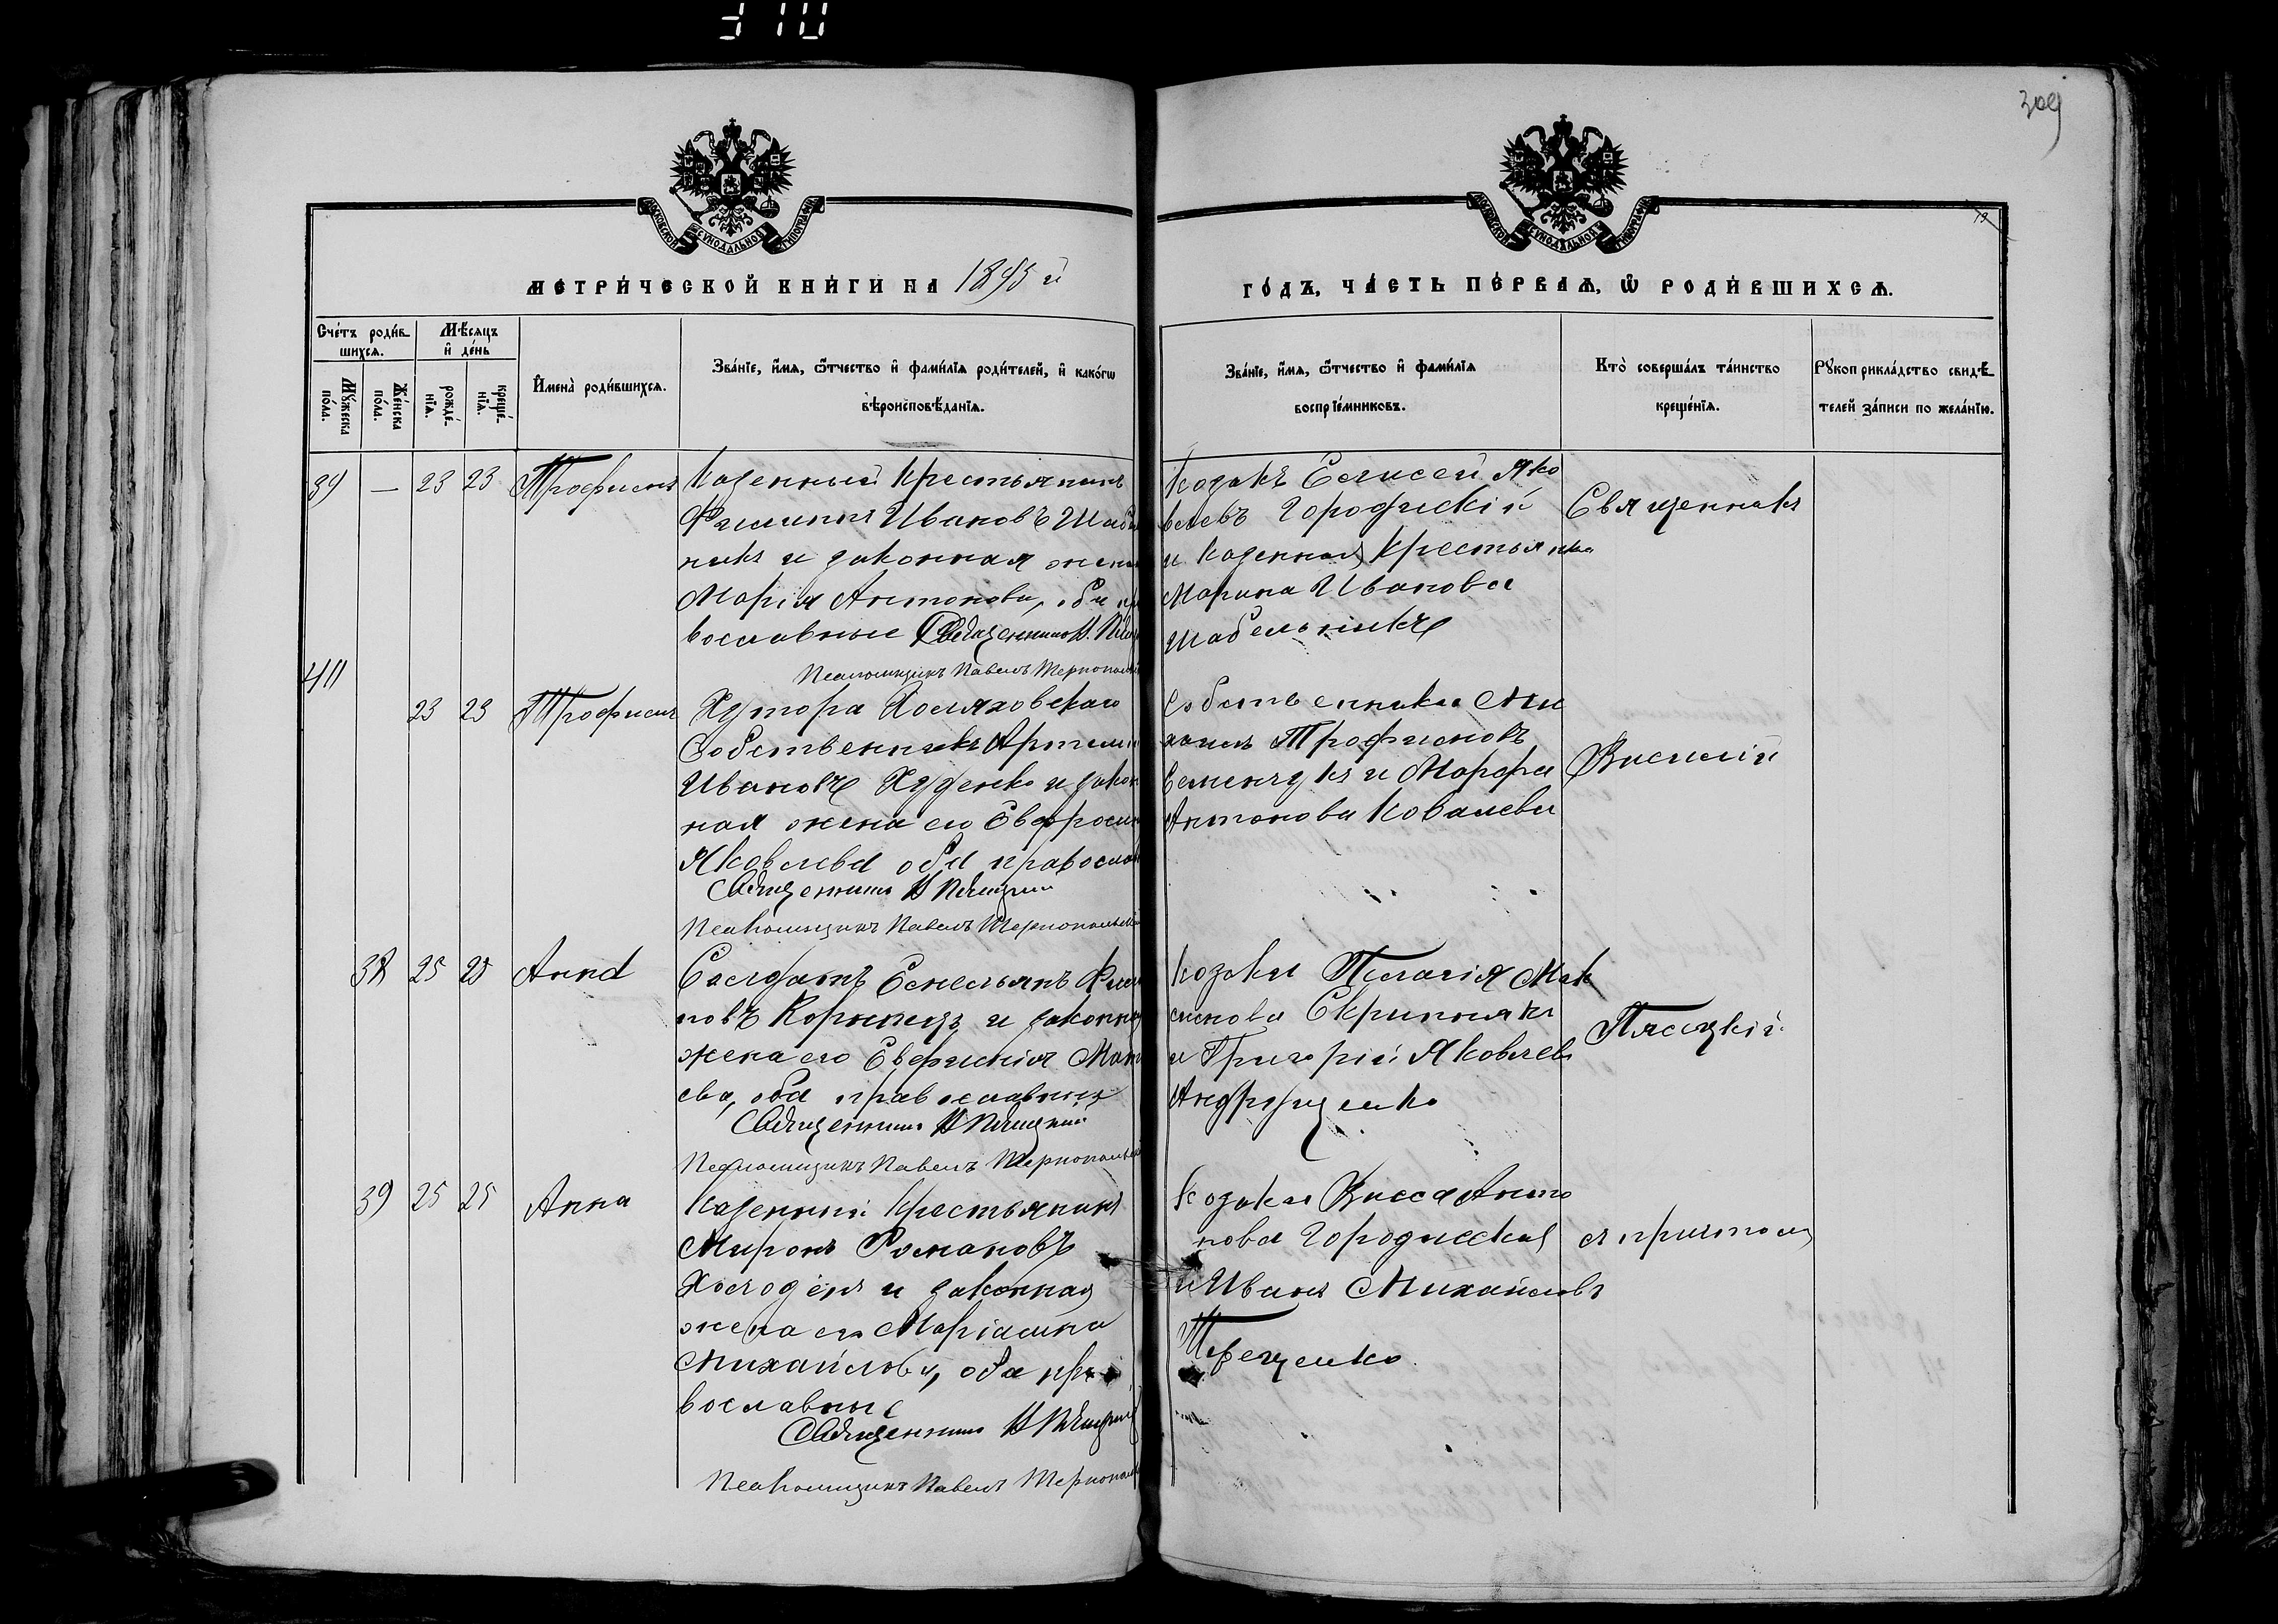 310
309
13
МОСКОВСКОЙ СУНОДАЛЬНОЙ ТИПОГРАФІИ
МОСКОВСКОЙ СУНОДАЛЬНОЙ ТИПОГРАФІИ
МЕТРИ́ЧЕСКОЙ КНИ́ГИ НА 1893 й
ГО́ДЪ, ЧА́СТЬ ПЕ́РВАѦ, Ѡ҆ РОДИ́ВШИХСѦ.
Сче́тъ роди́в-
шихсѧ.
Мѣ́сѧцъ
и҆ де́нь
Мꙋ́жеска по́ла.
Же́нска по́ла.
рожде́-
нїѧ.
креще́-
нїѧ.
И҆мена̀ роди́вшихсѧ.
Зва́нїе, и҆́мѧ, ѻ҆́тчество и҆ фами́лїѧ роди́телей, и҆ како́гѡ
вѣроисповѣ́данїѧ.
Зва́нїе, и҆́мѧ, ѻ҆́тчество и҆ фами́лїѧ
воспрїе́мниковъ.
Кто̀ соверша́лъ та́инство
креще́нїѧ.
Рꙋкоприкла́дство свидѣ́-
телей за́писи по жела́нїю.
39 — 23 23 Трофимъ
Казенный Крестьянинъ
Филиппъ Ивановъ Шабель
никъ и законная жена
Марія Антонова, оба пра
вославные Священникъ В. Пясецкій
Псаломщикъ Павелъ Тернопольскій
Козакъ Елисей Яко
влевъ Городискій
и казенная Крестьянка
Марина Иванова
Шабельникъ
Священникъ
40
23 23 Трофимъ
Хутора
Собственникъ Артемій
Ивановъ Худенко и закон
ная жена его Евфросинія
Яковлева оба православ
Священникъ В Пясецкій
Псаломщикъ Павелъ Тернопольскій
Собственники Ми
хаилъ Трофимовъ
Семенчукъ и Марфа
Антонова Ковалева
Василій
38 25 25 Анна
Солдатъ Емельянъ Филип
повъ и законная
жена его Евфимія Мат
ева, оба православные
Священникъ В Пясецкій
Псаломщикъ Павелъ Тернопольскій
Козаки Пелагія Мак
симова Скрипникъ
и Григорій Яковлевъ
Андрущенко
Пясецкій
39 25 25 Анна
Казенный Крестьянинъ
Миронъ Романовъ
Холоденъ и законная
жена его Маріамна
Михайлова, оба пра
вославные
Священникъ В Пясецкій
Псаломщикъ Павелъ Тернопольскій
Козаки Васса Анто
нова Городисская
и Иванъ Михайловъ
Терещенко.
съ причтомъ